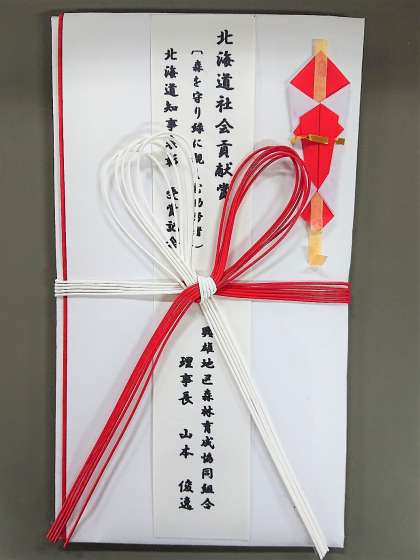 北海道社会貢献賞
(森を守り緑に親しむ功労者)
北海道知事表彰 受賞記念
興雄地区森林育成協同組合
理事長 山本 俊逸